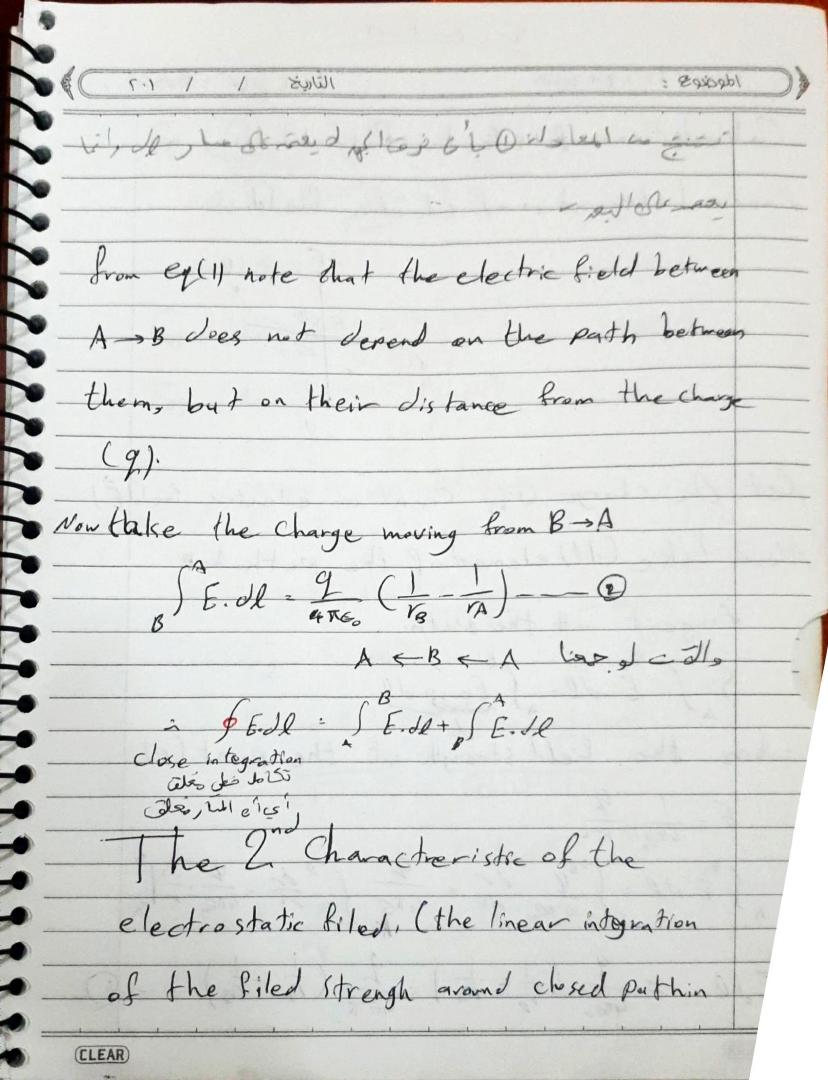 الموضوع : التاريخ / / ٢٠١
نستنتج من المعادلة ① بأن فرق الجهد لا يعتمد على مسار dl وانما
يعتمد على البعد
from eq(1) note that the electric field between
A → B does not depend on the path between
them, but on their distance from the charge
(q).
Now take the charge moving from B → A
∫_B^A E.dl = q/4πε₀ (1/r_B - 1/r_A) ——— ②
والآن لو جمعنا A ← B ← A
∴ ∮ E.dl = ∫_A^B E.dl + ∫_B^A E.dl
close integration
تكامل خطي مغلق
أي أن المسار مغلق
The 2nd Charactreristic of the
electrostatic filed, (the linear integration
of the filed strengh around closed path in
CLEAR